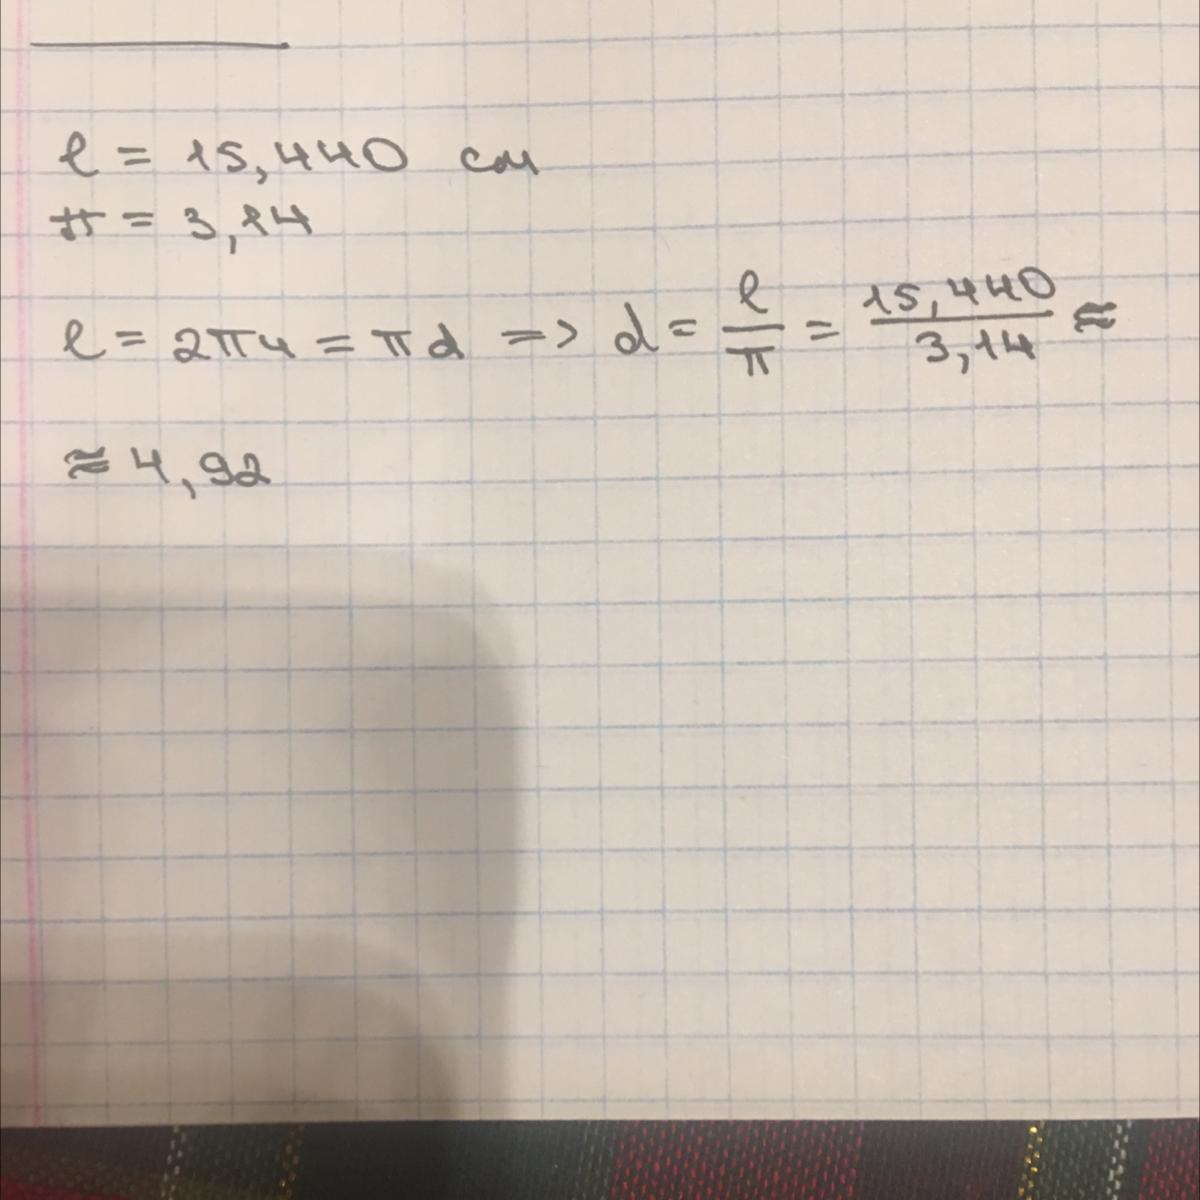 ℓ = 15,440 см
π = 3,14
ℓ = 2πч = πd => d = ℓ/π = 15,440/3,14 ≈
≈ 4,92